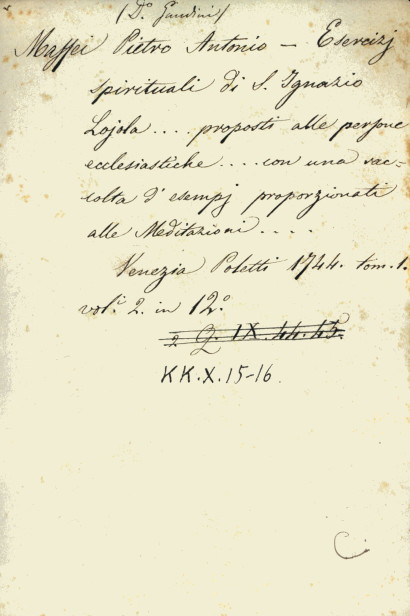 (D.º Gandini)
Maffei Pietro Antonio — Esercizj
spirituali di S. Ignazio
Lojola .... proposti alle persone
ecclesiastiche .... con una rac-
colta d'esempj proporzionati
alle Meditazioni ....
Venezia Poletti 1744. tom. 1.
vol.i 2. in 12.º
2 Q. IX. 44. 45.
KK.X.15-16.